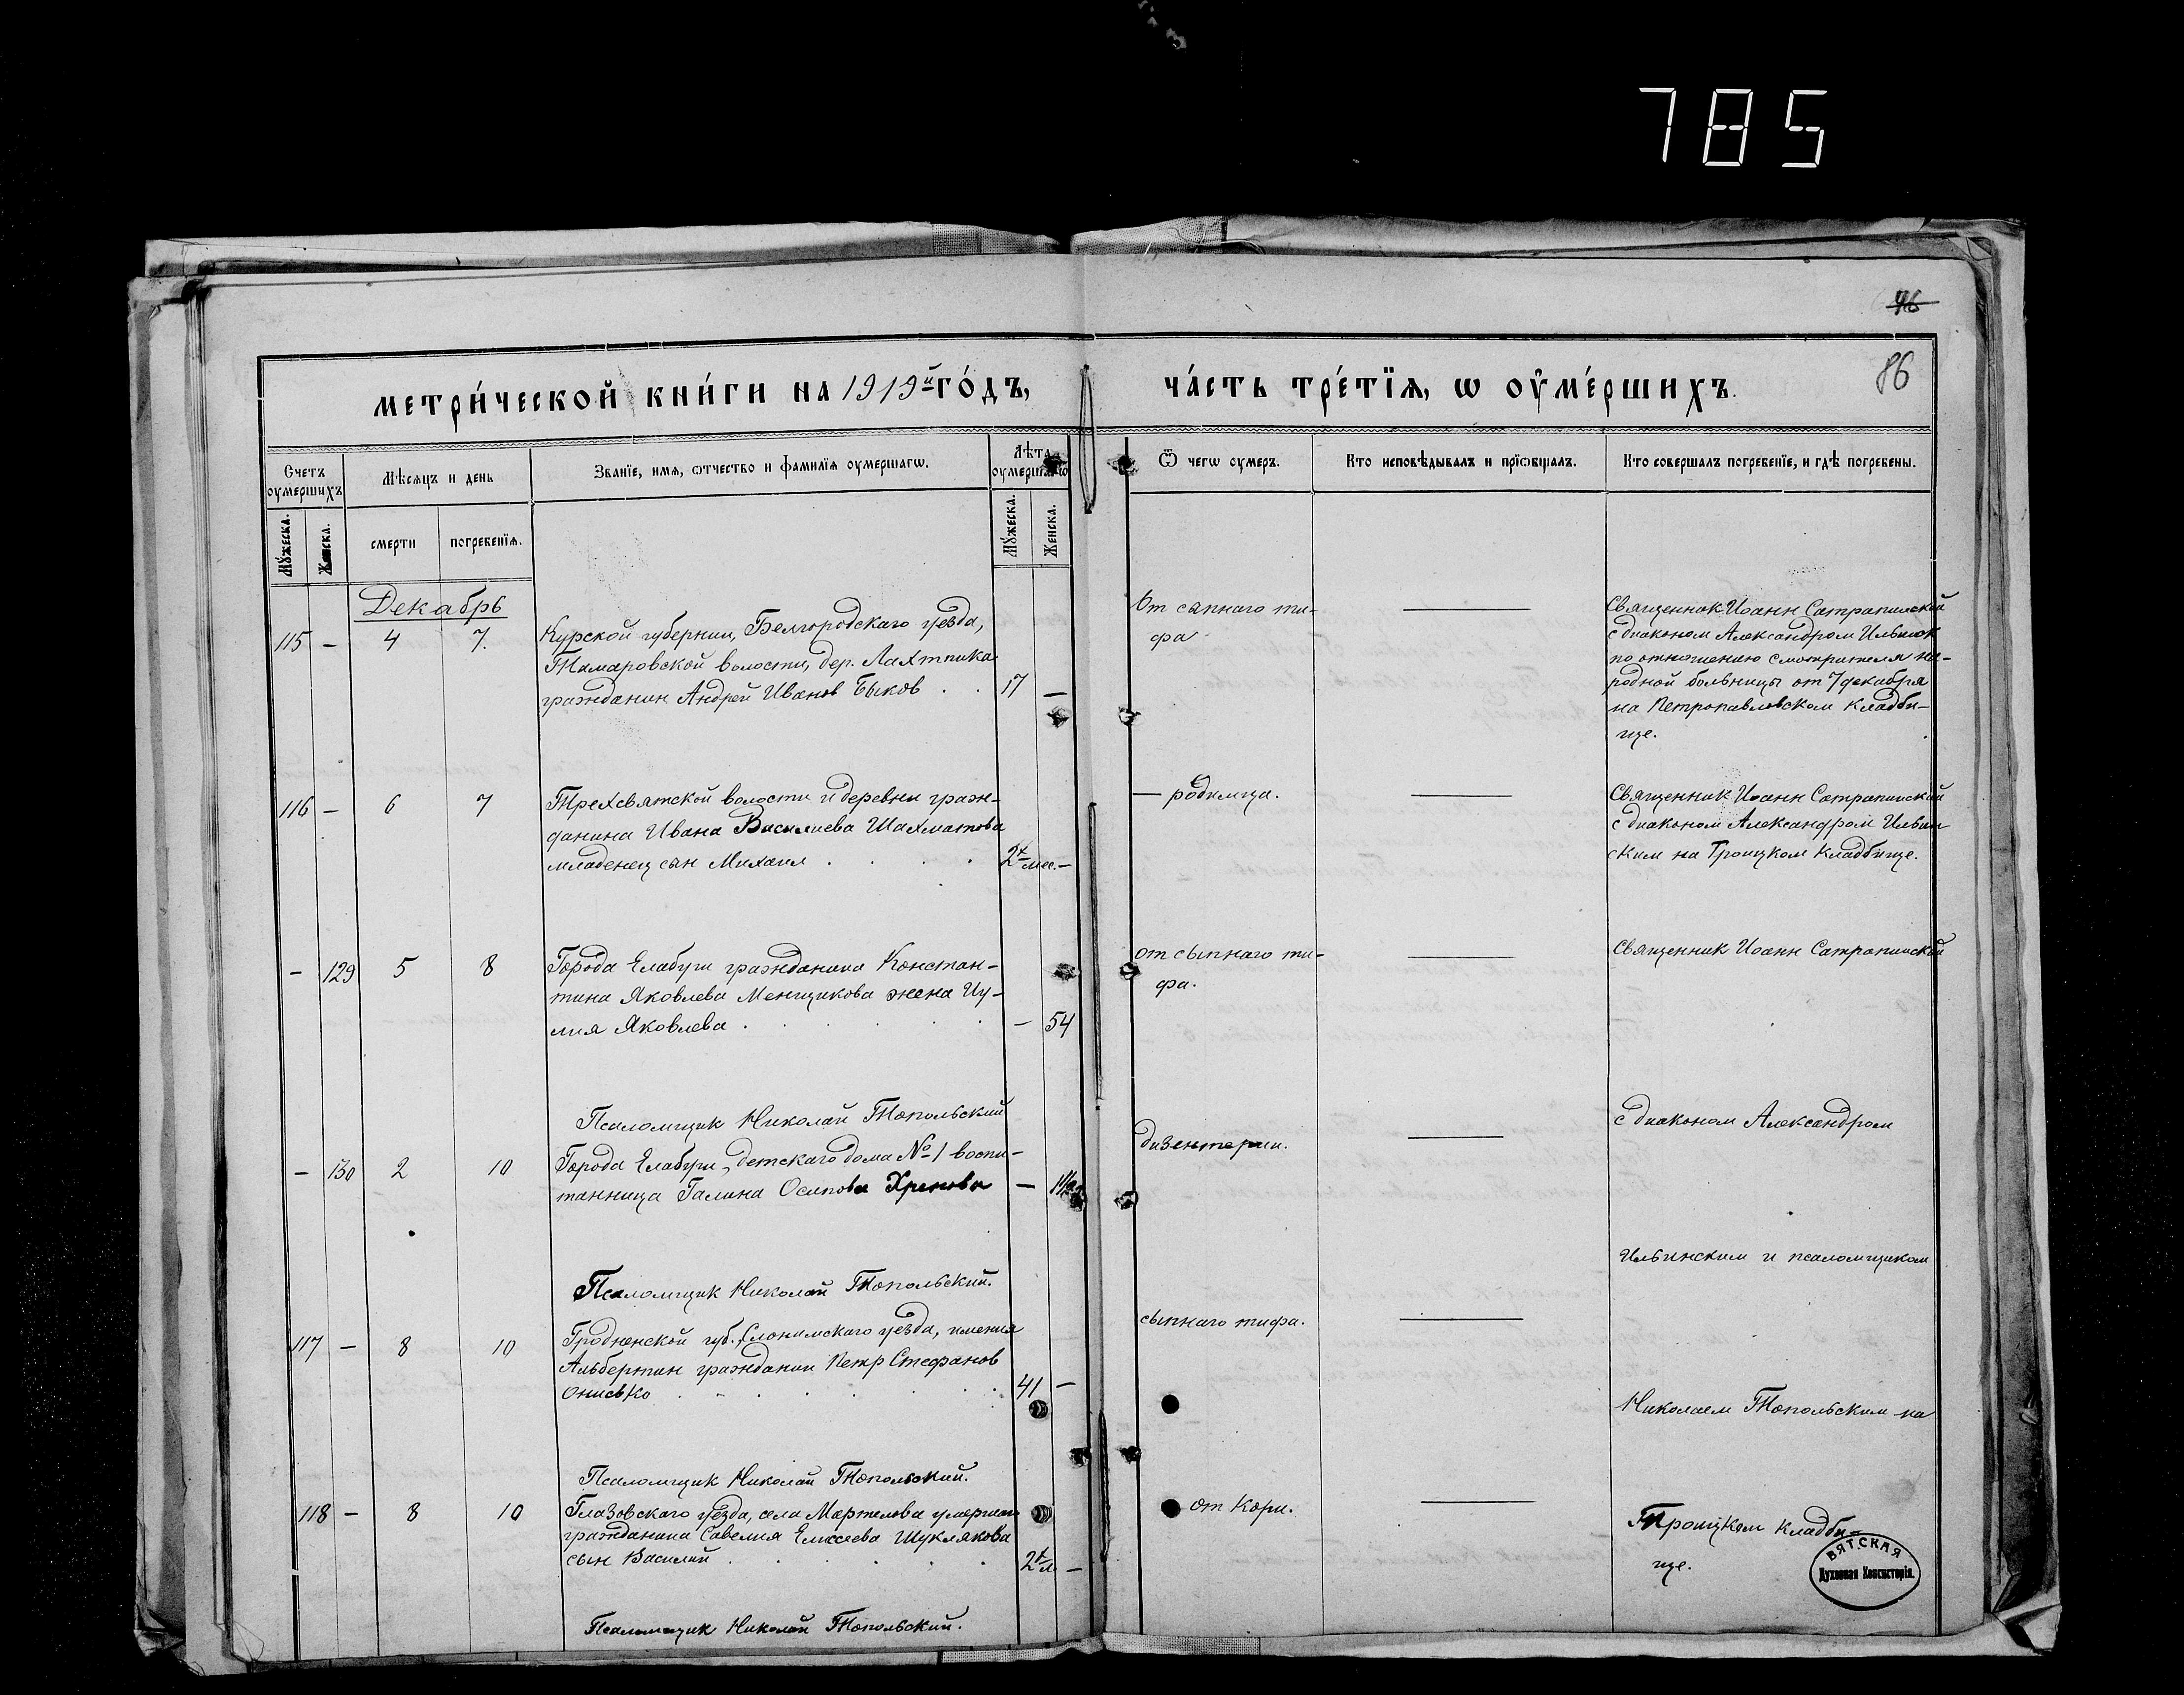 785
46
86
метри́ческой кни́ги на 1919й го́дъ,
ча́сть тре́тїѧ, ѡ оу҆ме́ршихъ.
Счетъ оумершихъ
Мѣсѧцъ и день
Званїе, имѧ, ѿтчество и фамилїѧ оумершагѡ.
Лѣта оумершагѡ
Ѿ чегѡ оумеръ.
Кто исповѣдывалъ и прїѡбщалъ.
Кто совершалъ погребенїе, и гдѣ погребены.
Мꙋжеска.
Женска.
смерти
погребенїѧ.
Мꙋжеска.
Женска.
Декабрь
115 — 4 7.
Курской губернии, Белгородскаго уезда,
Тамаровской волости, дер.
гражданин Андрей Иванов Быков . . 17 —
От сыпнаго ти-
фа
Священник Иоанн Сатрапинский
с диаконом Александром Ильинск
по отношению смотрителя на-
родной больницы от 7 декабря
на Петропавловском кладби-
ще.
116 — 6 7
Трехсвятской волости и деревни граж-
данина Ивана Василиева Шахматова
младенец сын Михаил . . . 2х мес. —
— родимца.
Священник Иоанн Сатрапинский
с диаконом Александром Ильин
ским на Троицком кладбище.
— 129 5 8
Города Елабуги гражданина Констан-
тина Яковлева Менщикова жена Иу-
лия Яковлева . . . . — 54
от сыпнаго ти-
фа.
Священник Иоанн Сатрапинский
Псаломщик Николай Топольский
— 130 2 10
Города Елабуги, детскаго дома № 1 воспи-
танница Галина Осипова Хренова —
дизентерии.
с диаконом Александром
Псаломщик Николай Топольский.
Ильинским и псаломщиком
117 — 8 10
Гродненской губ., Слонимскаго уезда, имения
Альбертин гражданин Петр Стефанов
Онисько . . . . . . 41 —
сыпнаго тифа.
Николаем Топольским на
Псаломщик Николай Топольский.
118 — 8 10
Глазовскаго уезда, села Мартелова умершаго
гражданина Савелия Елисеева Шуклякова
сын Василий . . . . . 2х л —
от кори.
Троицком кладби-
ще.
Псаломщик Николай Топольский.
ВЯТСКАЯ
Духовная Консисторія.